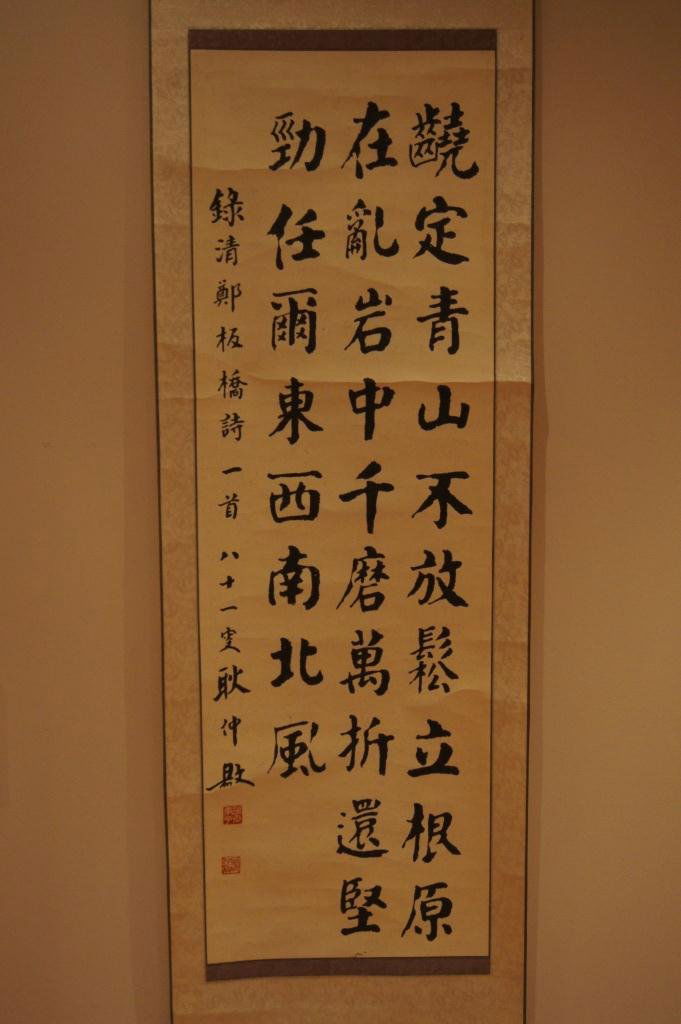 齩定青山不放鬆立根原
在亂岩中千磨萬折還堅
勁任爾東西南北風
錄清鄭板橋詩一首 八十一叟耿仲敭